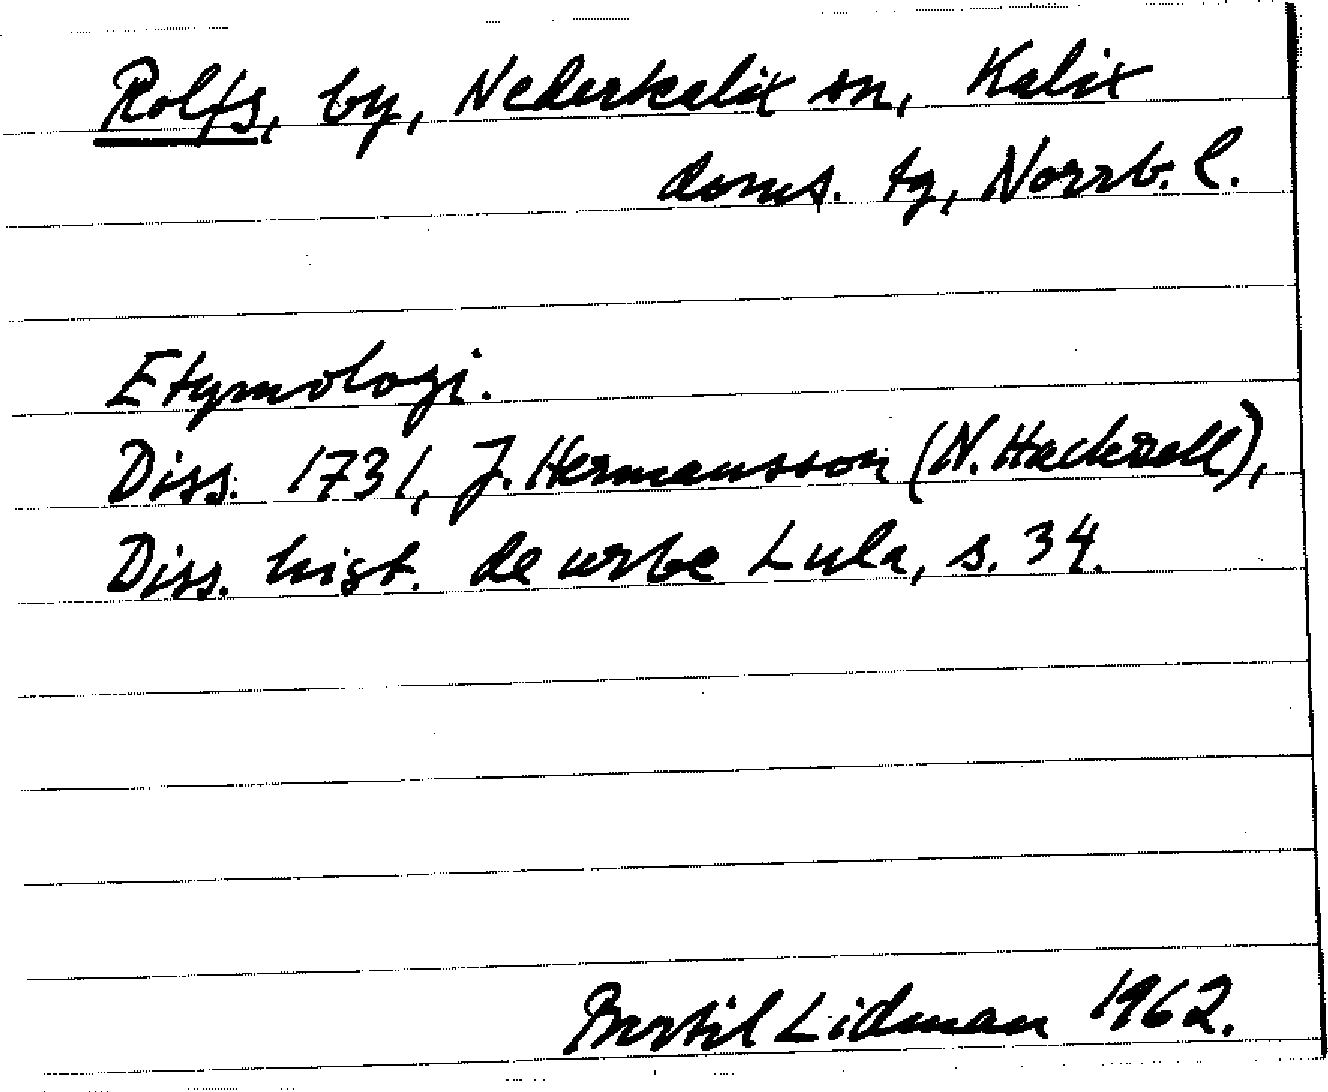 Rolfs, by, Nederkalix sn, Kalix
doms. tg, Norrb. l.
Etymologi.
Diss. 1731, J. Hermansson (N. Hackzell),
Diss. hist. de urbe Lula, s. 34.
Bertil Lidman 1962.